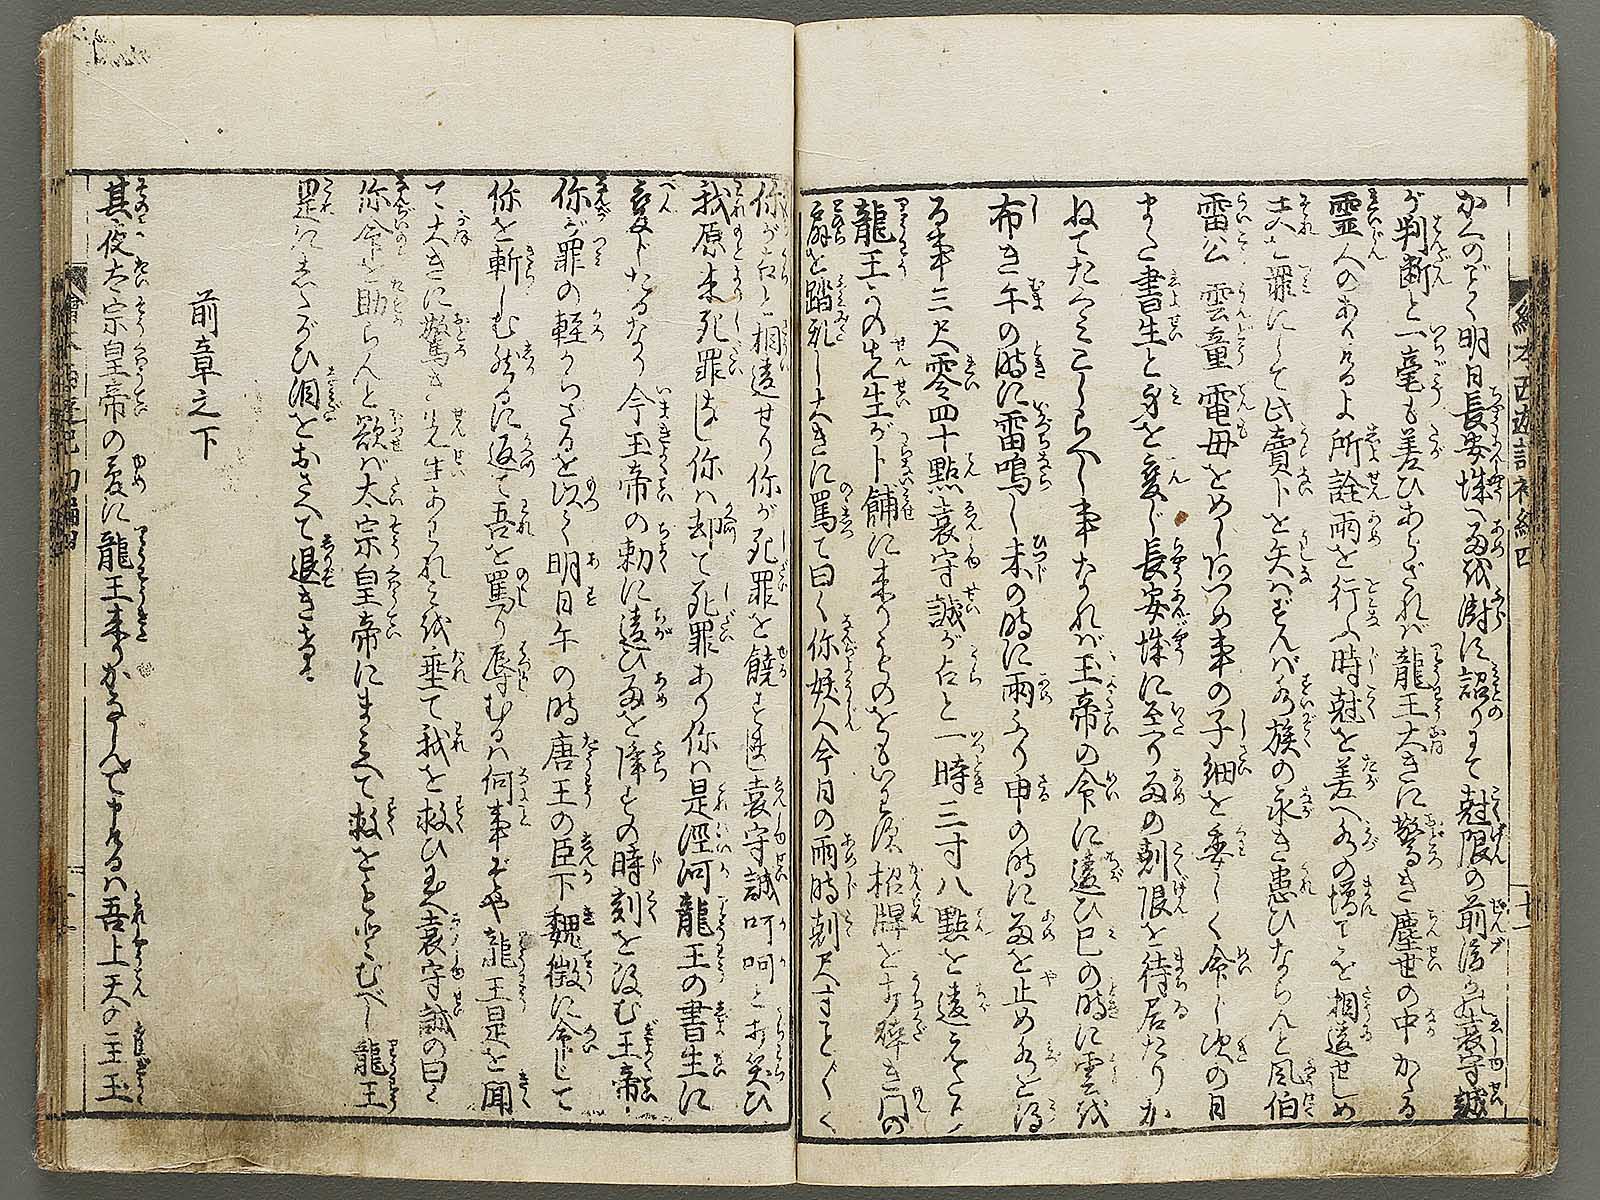 繪本西遊記初編四
かくのごとく明日長安城へ雨を澍に詔りして尅限の前後も袁守誠
が判断と一毫も差ひあらざれバ龍王大きに驚き塵世の中かゝる
霊人のありけるよ所詮雨を行ふ時尅を差へ水の増てを相違せしめ
夫を罪にして此賣卜を失はずんバ水族の永き患ひならんと風伯
雷公雲童電母をめしあつめ事の子細を委しく令し次の日
また書生と身を変じ長安城に至り雨の尅限を待居たりか
ねてたくミこしらへし事なれバ玉帝の令に違ひ巳の時に雲を
布き午の時に雷鳴し未の時に雨ふり申の時に雨を止め水を得
る事三尺零四十點袁守誠が占と一時三寸八點を違えたり
龍王かの先生が卜舗に来りものをもいはず招牌を打碎き門の
扉を踏乱し大きに罵て曰く你妖人今日の雨時尅尺寸ことごとく
你が占と相違せり你が死罪を饒すまじ袁守誠呵呵と打笑ひ
我原来死罪なし你ハ却て死罪あり你ハ是涇河龍王の書生に
変じたるなり今玉帝の勅に違ひ雨を降すの時刻を改む玉帝
你が罪の軽からざるを以て明日午の時唐王の臣下魏徴に令じて
你を斬しむ然るに返て吾を罵り辱むるハ何事ぞや龍王是を聞
て大きに驚き先生あはれミを垂て我を救ひ玉へ袁守誠の曰く
你命を助らんと欲バ太宗皇帝にまミへて救をもとむべし龍王
是にしたがひ涙をおさへて退きさる
前章之下
其夜太宗皇帝の夢に龍王来りかなしんで申けるハ吾上天の主玉